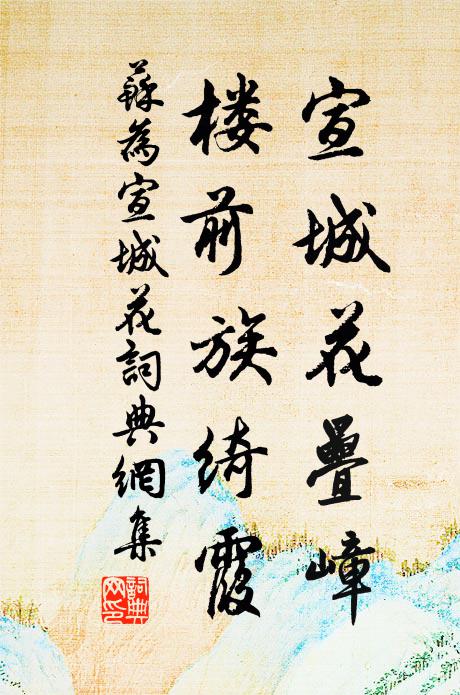 宣城花疊嶂
楼前族綺霞
蘇為宣城花詞典網集
詞典